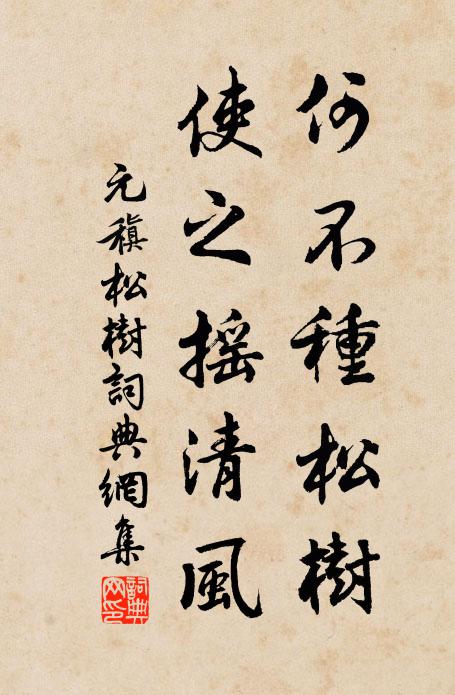 何不種松樹
使之搖清風
元稹松樹詞典網集
詞典
网印